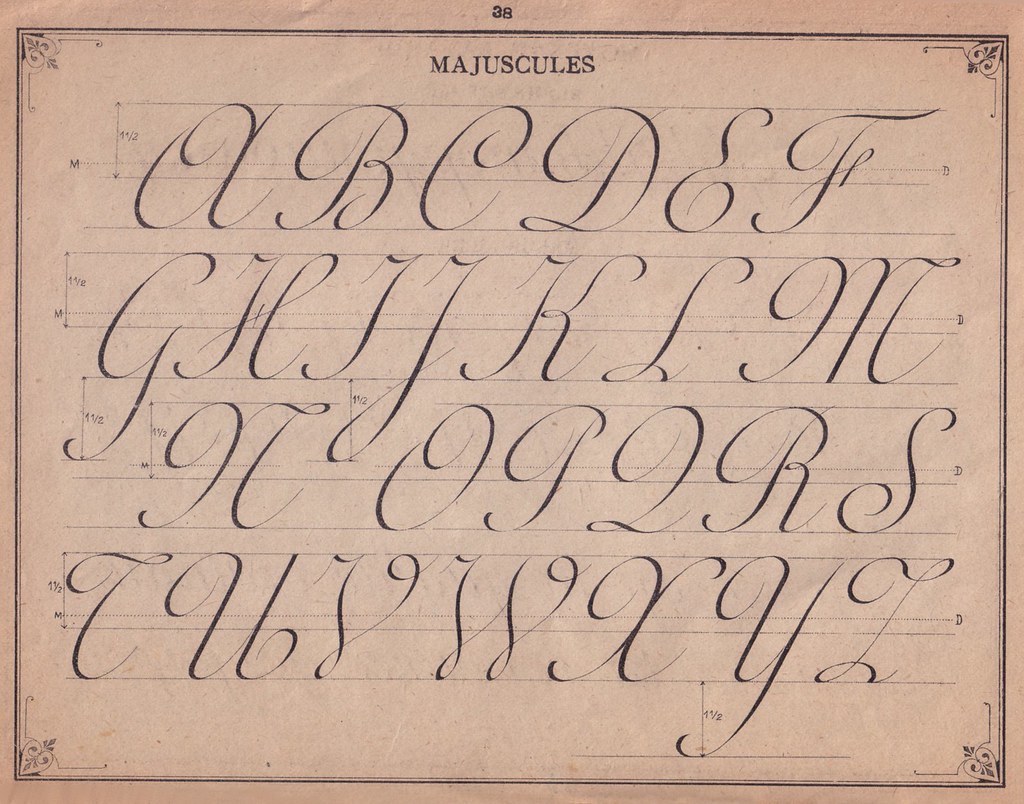 38
MAJUSCULES
1 1/2
M A B C D E F D
1 1/2
M G H I J K L M D
1 1/2 1 1/2 1 1/2
M N O P Q R S D
1 1/2
M T U V W X Y Z D
1 1/2